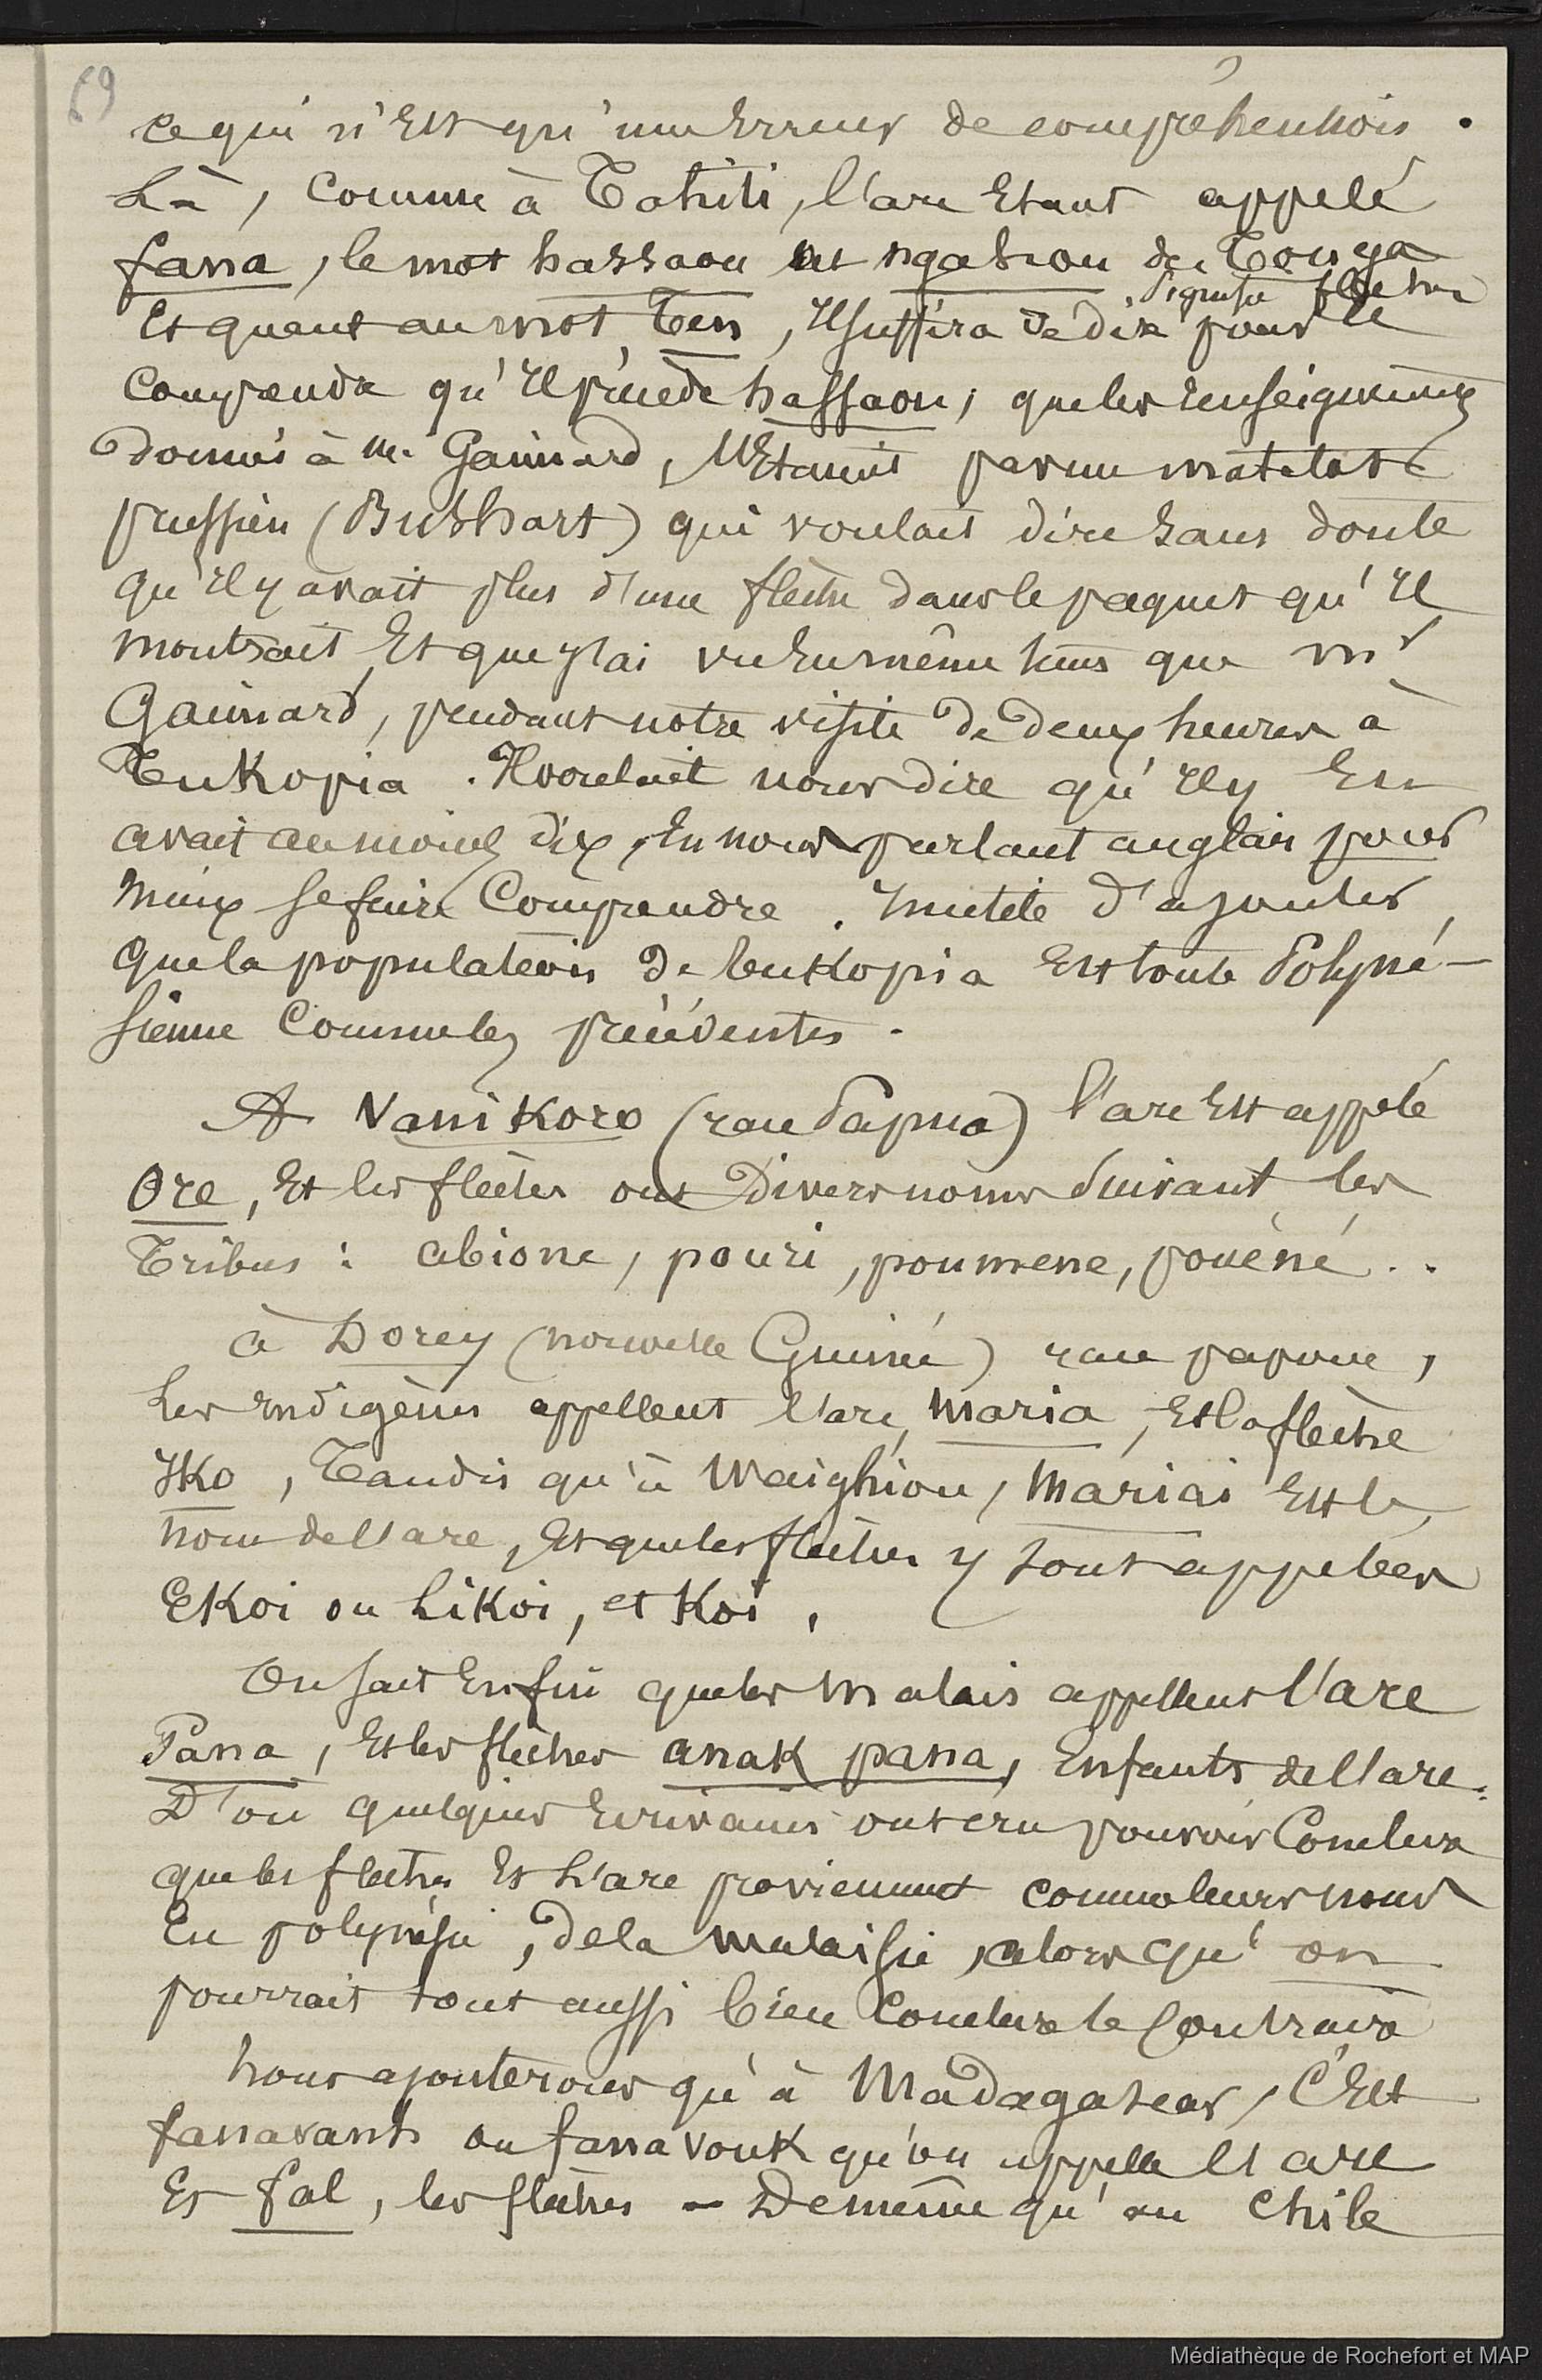 69
ce qui n'est qu'une erreur de compréhension.
Là, comme à Tahiti, l'arc étant appelé
fana, le mot hassaou est ngahaou de Tonga
signifie flèche
Et quant au mot Ten, il suffira de dire pour le
comprendre qu'il précède hassaou; que les renseignements
donnés à Mr Gaimard, l'étaient par un matelot
prussien (Bushart) qui voulait dire sans doute
qu'il y avait plus d'une flèche dans le paquet qu'il
montrait, Et que j'ai vu en même tems que mr
Gaimard, pendant notre visite de deux heures à
Tukopia. Il voulait nous dire qu'il y en
avait au moins dix, en nous parlant anglais pour
mieux se faire comprendre. Inutile d'ajouter
que la population de Tukopia est toute Polyné-
sienne comme les précédentes.
A Vanikoro (race Papua) l'arc est appelé
Ore, Et les flèches ont divers noms suivant les
Tribus : abione, pouri, poumene, pouéné..
à Dorey (nouvelle Guinée) race papoue,
les indigènes appellent l'arc, maria, et la flèche
Iko, Tandis qu'à Waighiou, mariai est le
nom de l'arc, et que les flèches y sont appelées
Ekoi ou Likoi, et Koi,
On sait enfin que les malais appellent l'arc
Pana, et les flèches anak pana, Enfants de l'arc.
D'où quelques Ecrivains ont cru pouvoir conclure
que les flèches et l'arc proviennent comme leurs noms
en polynésie, de la malaisie, alors qu'on
pourrait tout aussi bien conclure le contraire
nous ajouterons qu'à Madagascar, c'est
fanavants ou fanavouk qu'on appelle l'arc
Et fal, les flèches - De même qu'au Chile
Médiathèque de Rochefort et MAP